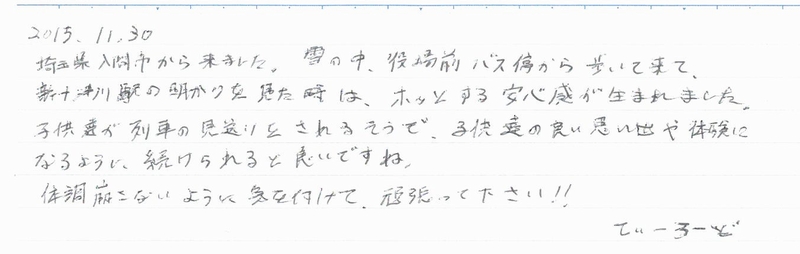 2015.11.30
埼玉県入間市から来ました。雪の中、役場前バス停から歩いて来て、
新十津川駅の明かりを見た時は、ホッとする安心感が生まれました。
子供達が列車の見送りをされるそうで、子供達の良い思い出や体験に
なるように、続けられると良いですね。
体調崩さないように気を付けて、頑張って下さい!!